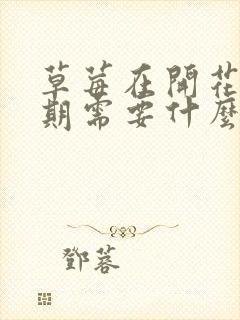 草莓在開花
期需要什麼
鄧蓉